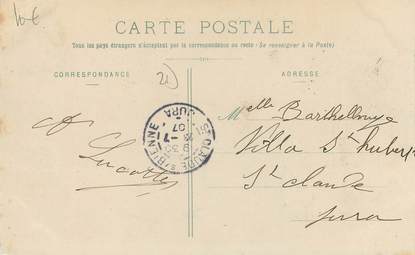 10€
CARTE POSTALE
Tous les pays étrangers n'acceptent pas la correspondance au recto (Se renseigner à la Poste)
CORRESPONDANCE
ADRESSE
ST CLAUDE S/ BIENNE
JURA
9 30
07
Melle Barthelemye
Villa St hubert
St claude
Jura